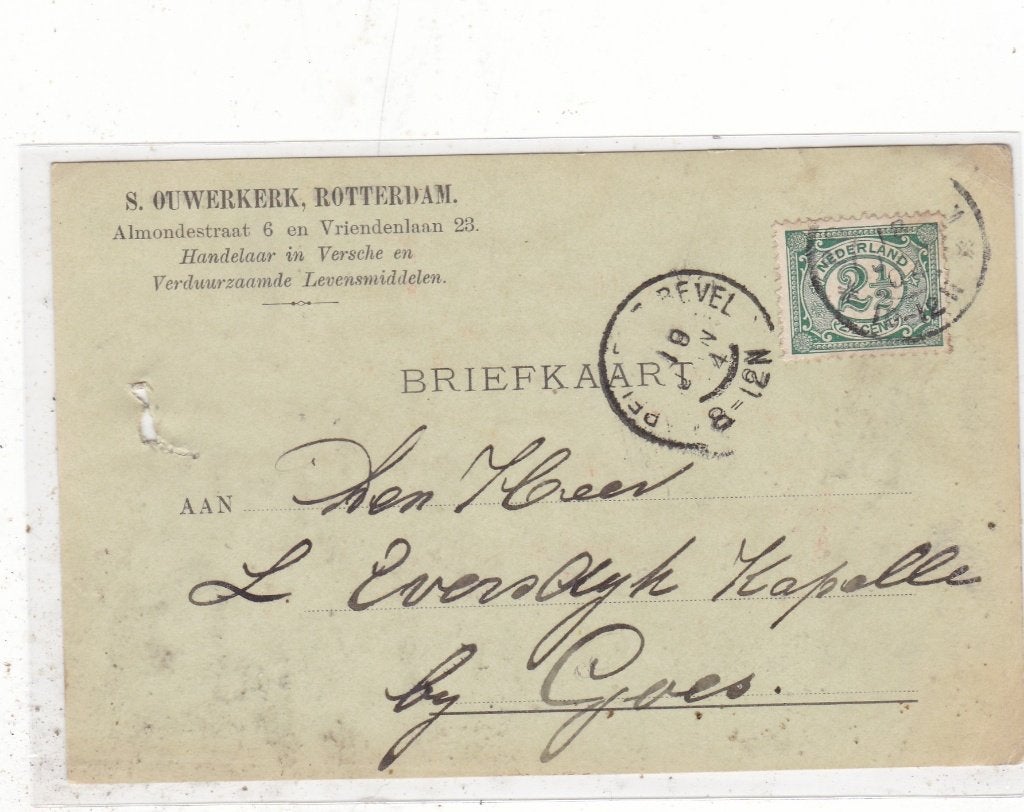 S. OUWERKERK, ROTTERDAM.
Almondestraat 6 en Vriendenlaan 23.
Handelaar in Versche en
Verduurzaamde Levensmiddelen.
NEDERLAND
2½
CENT
BEVEL
8-12N
BRIEFKAART
AAN Den Heer
L. Eversdyk Kapelle
by Goes.